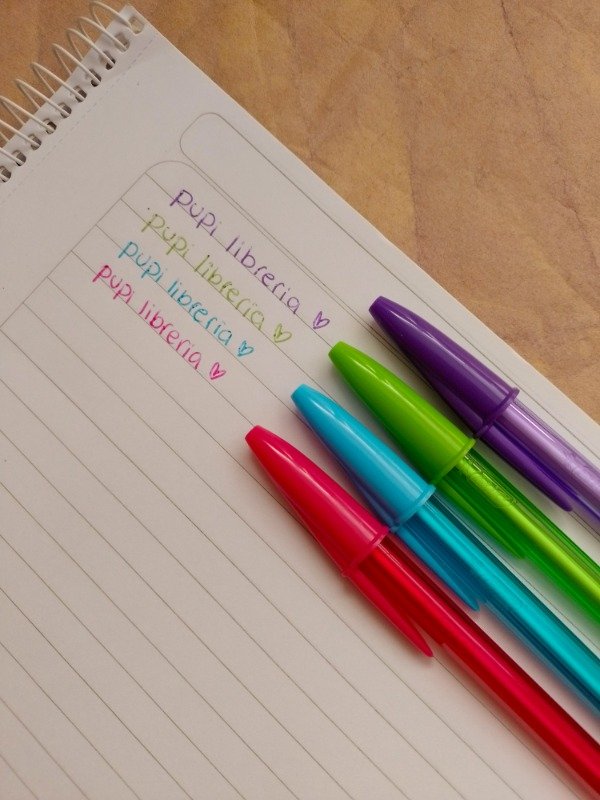 pupi libreria ♡
pupi libreria ♡
pupi libreria ♡
pupi libreria ♡